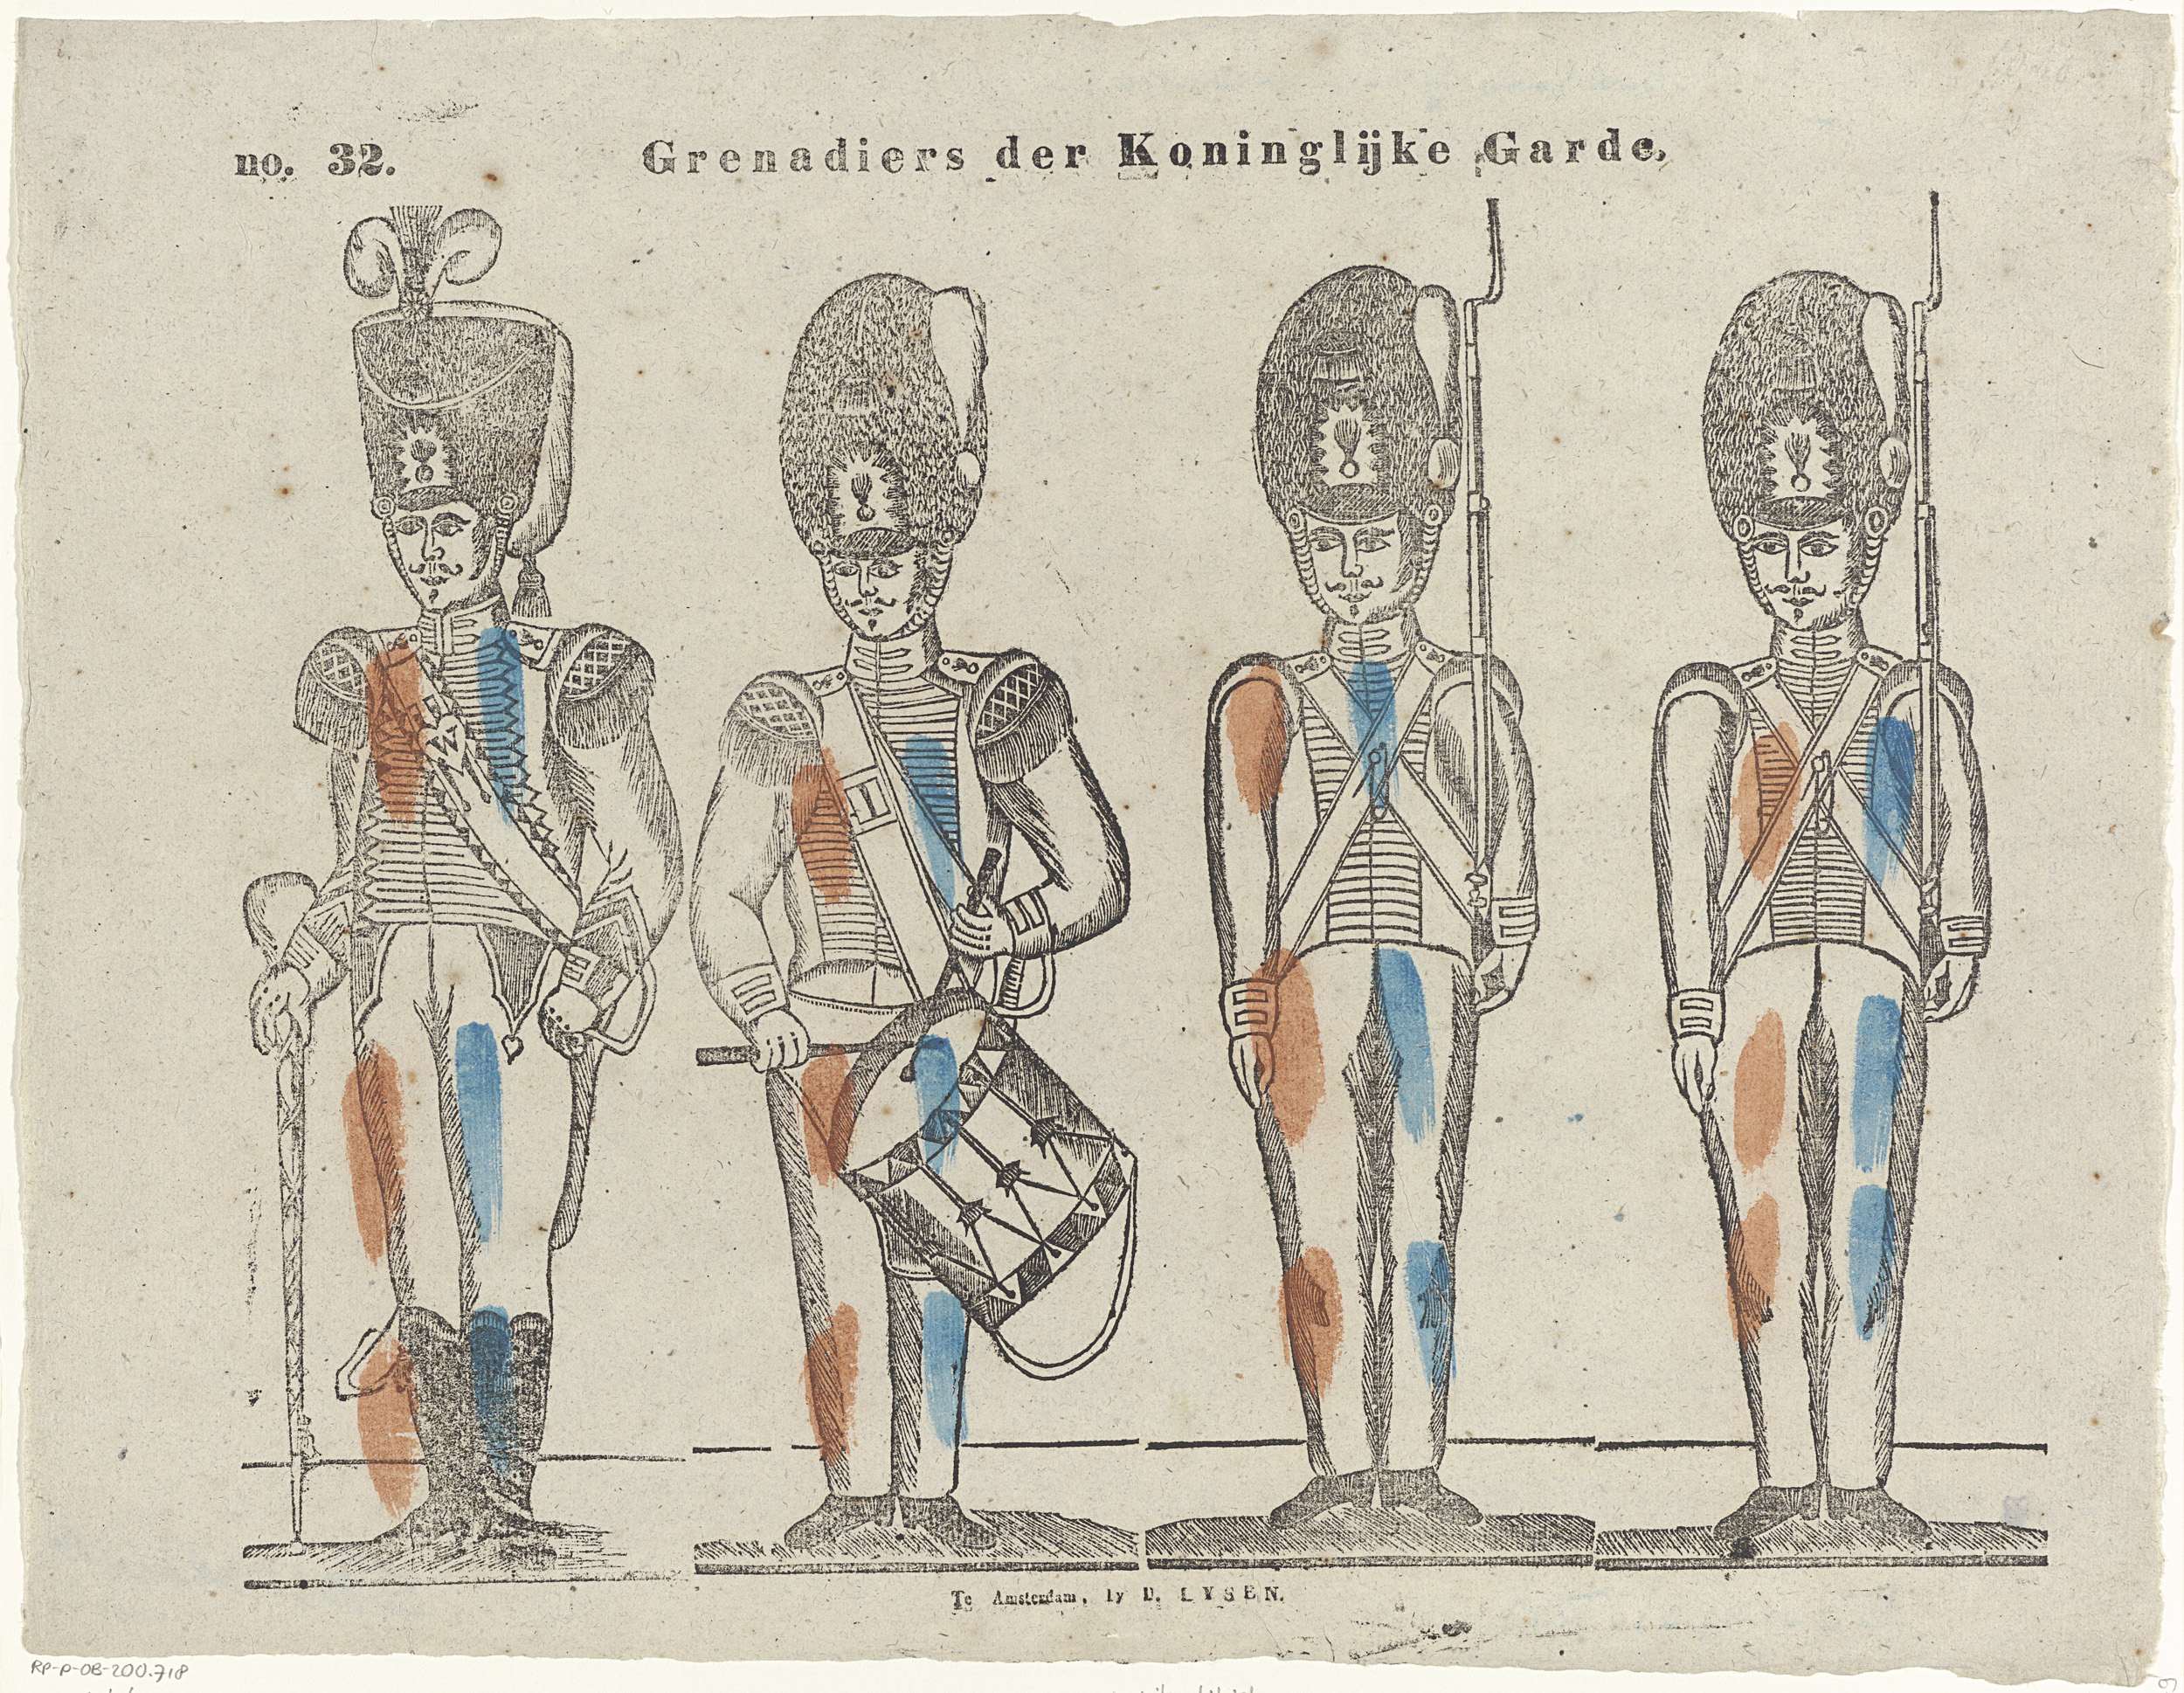 no. 32.
Grenadiers der Koninglijke Garde.
Te Amsterdam, by D. LYSEN.
RP-P-OB-200.718